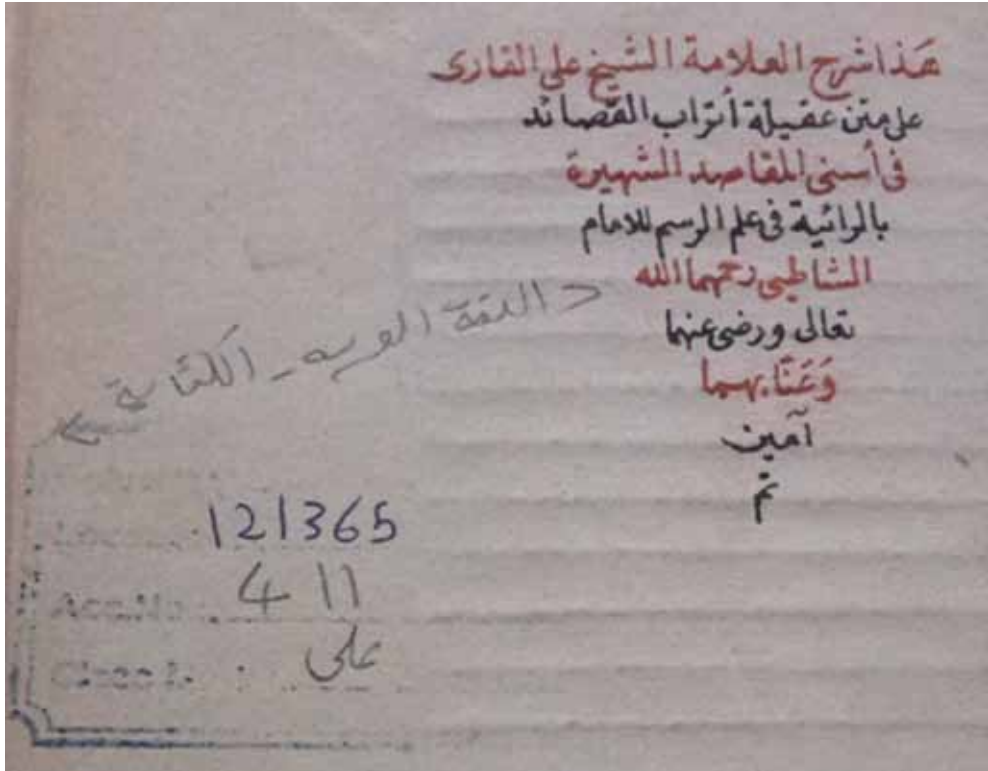 هَذا شرح العلامة الشيخ على القارى
على متن عقيلة أتراب القصائد
فى أسنى المقاصد الشهيرة
بالرائية فى علم الرسم للامام
الشاطبى رحمهما الله
تعالى ورضى عنهما
وَعَنّا بهما
آمين
تم
> اللغة العربيه - الكتابة
121365
Acc.No: 411
Class No : على